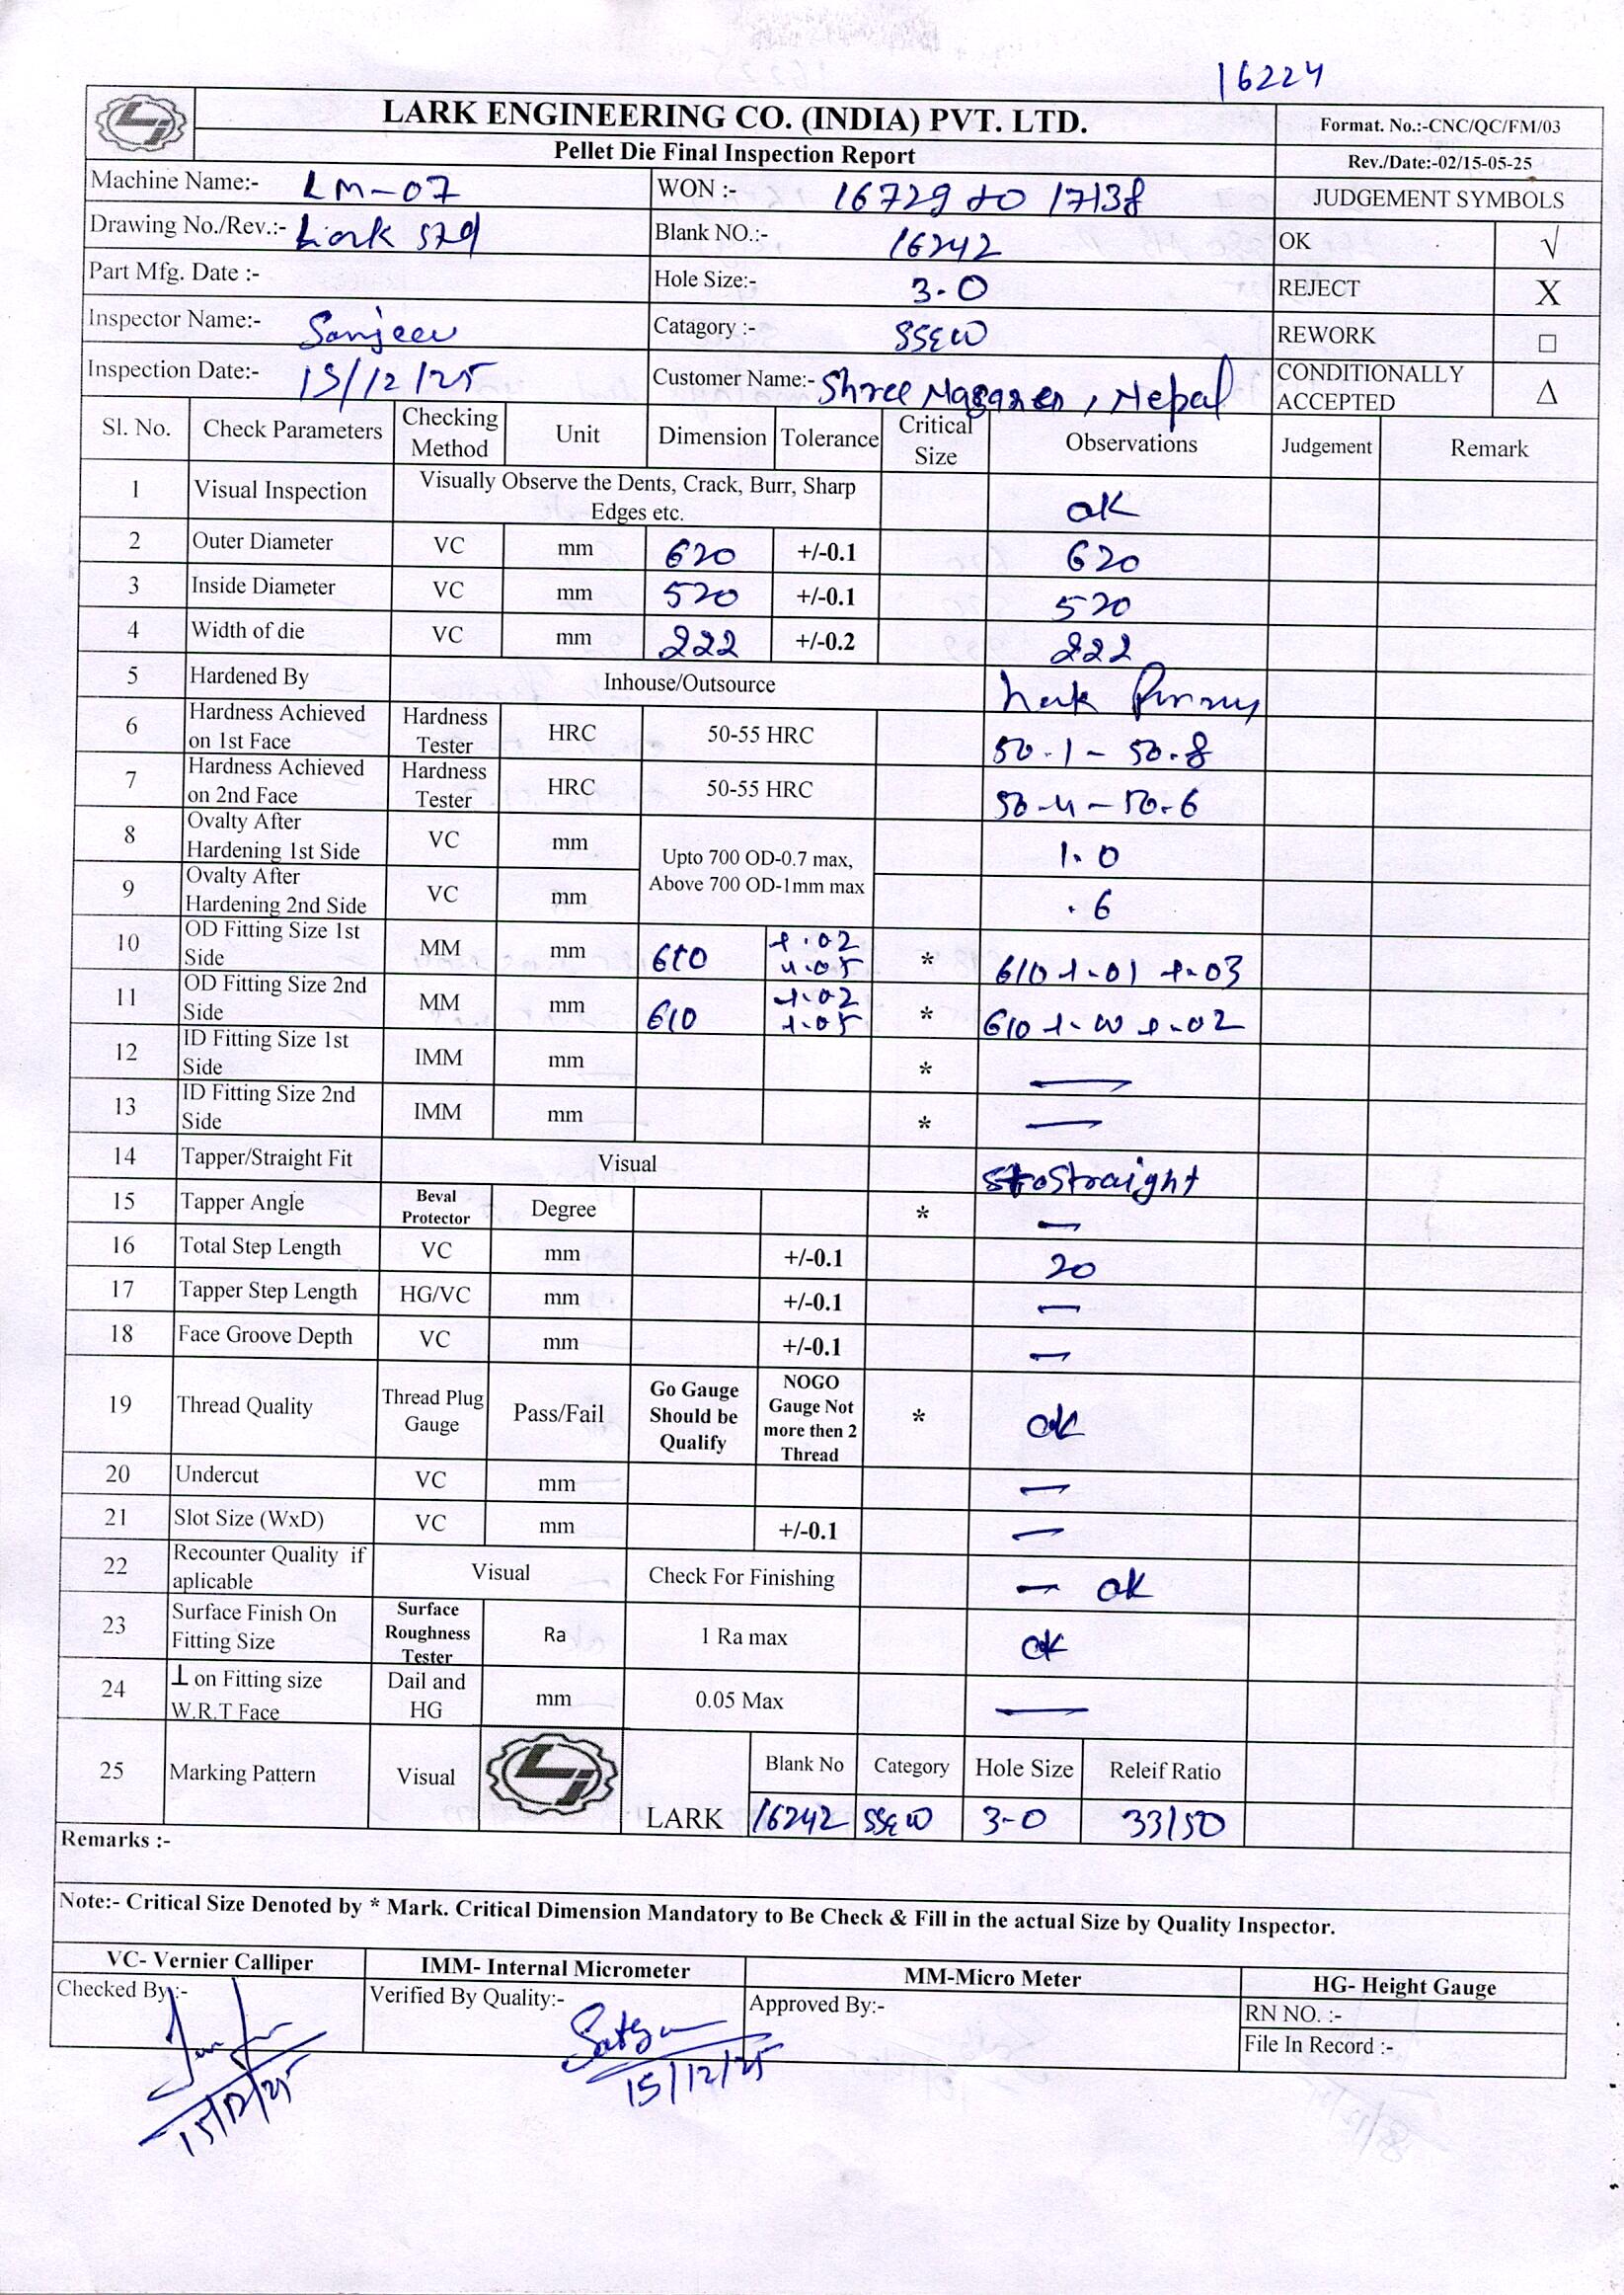 16224
LARK ENGINEERING CO. (INDIA) PVT. LTD.
Format. No.:-CNC/QC/FM/03
Pellet Die Final Inspection Report
Rev./Date:-02/15-05-25
Machine Name:- LM-07 WON :- 16729 to 17138 JUDGEMENT SYMBOLS
Drawing No./Rev.:- Lark std Blank NO.:- 16242 OK √
Part Mfg. Date :- Hole Size:- 3.0 REJECT X
Inspector Name:- Sanjeev Catagory :- SSEW REWORK □
Inspection Date:- 15/12/25 Customer Name:- Shree Nepal CONDITIONALLY ACCEPTED Δ
Sl. No. Check Parameters Checking Method Unit Dimension Tolerance Critical Size Observations Judgement Remark
1 Visual Inspection Visually Observe the Dents, Crack, Burr, Sharp Edges etc. ok
2 Outer Diameter VC mm 620 +/-0.1 620
3 Inside Diameter VC mm 520 +/-0.1 520
4 Width of die VC mm 222 +/-0.2 222
5 Hardened By Inhouse/Outsource Lark
6 Hardness Achieved on 1st Face Hardness Tester HRC 50-55 HRC 50.1 - 50.8
7 Hardness Achieved on 2nd Face Hardness Tester HRC 50-55 HRC 50.4 - 50.6
8 Ovalty After Hardening 1st Side VC mm Upto 700 OD-0.7 max, Above 700 OD-1mm max 1.0
9 Ovalty After Hardening 2nd Side VC mm .6
10 OD Fitting Size 1st Side MM mm 610 +.02 +.05 * 610 +.01 +.03
11 OD Fitting Size 2nd Side MM mm 610 +.02 +.05 * 610 +.00 +.02
12 ID Fitting Size 1st Side IMM mm * —
13 ID Fitting Size 2nd Side IMM mm * —
14 Tapper/Straight Fit Visual Straight
15 Tapper Angle Beval Protector Degree * —
16 Total Step Length VC mm +/-0.1 20
17 Tapper Step Length HG/VC mm +/-0.1 —
18 Face Groove Depth VC mm +/-0.1 —
19 Thread Quality Thread Plug Gauge Pass/Fail Go Gauge Should be Qualify NOGO Gauge Not more then 2 Thread * ok
20 Undercut VC mm —
21 Slot Size (WxD) VC mm +/-0.1 —
22 Recounter Quality if aplicable Visual Check For Finishing — ok
23 Surface Finish On Fitting Size Surface Roughness Tester Ra 1 Ra max ok
24 ⊥ on Fitting size W.R.T Face Dail and HG mm 0.05 Max —
25 Marking Pattern Visual LARK Blank No Category Hole Size Releif Ratio
16242 SSEW 3-0 33/50
Remarks :-
Note:- Critical Size Denoted by * Mark. Critical Dimension Mandatory to Be Check & Fill in the actual Size by Quality Inspector.
VC- Vernier Calliper IMM- Internal Micrometer MM-Micro Meter HG- Height Gauge
Checked By :- Verified By Quality:- Approved By:- RN NO. :-
File In Record :-
15/12/25 15/12/25